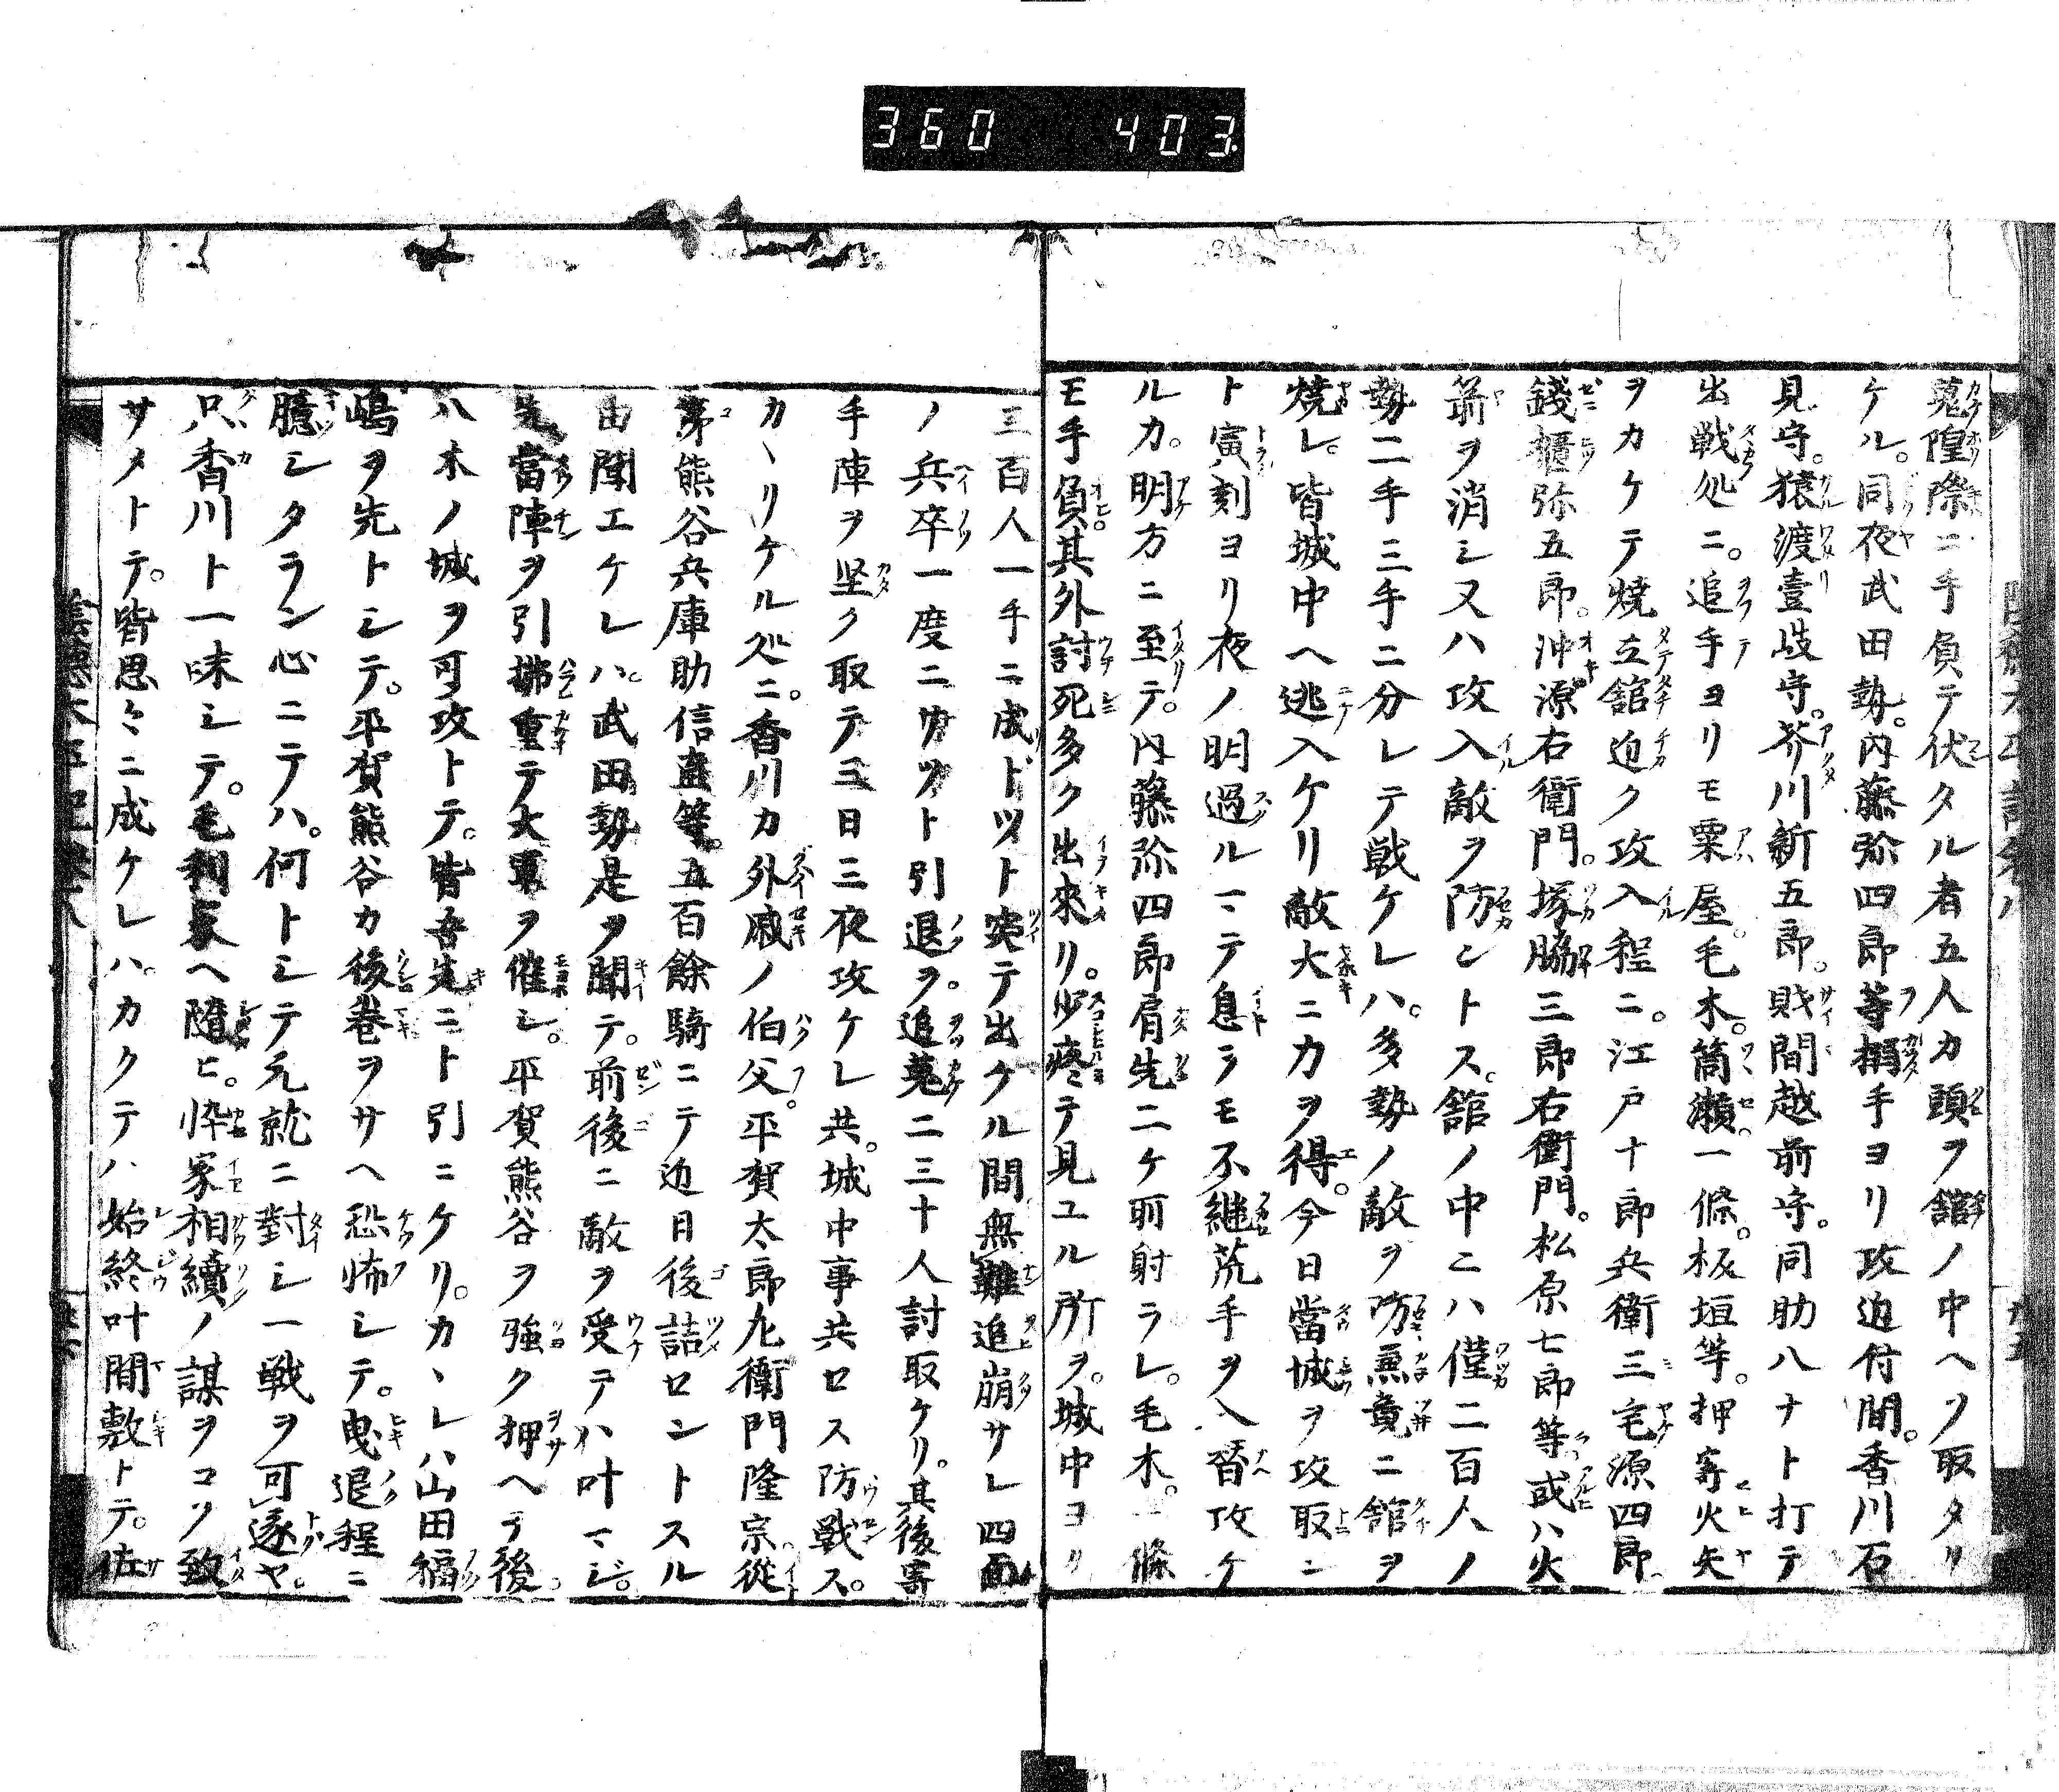 360 403
蒐隍際ニ手負テ伏タル者五人カ頭ヲ舘ノ中ヘソ取タリ
ケル。同夜武田勢。内藤弥四郎等搦手ヨリ攻迫付間。香川石
見守。猿渡壹岐守。芥川新五郎。財間越前守。同助八ナト打テ
出戦処ニ。追手ヨリモ粟屋。毛木。筒瀬。一條。板垣等。押寄火矢
ヲカケテ焼立舘迫ク攻入程ニ。江戸十郎兵衛三宅源四郎
錢櫃弥五郎。沖源右衛門。塚脇三郎右衛門。松原七郎等或ハ火
箭ヲ消シ又ハ攻入敵ヲ防ントス。舘ノ中ニハ僅二百人ノ
勢二手三手ニ分レテ戦ケレハ。多勢ノ敵ヲ防兼竟ニ舘ヲ
焼レ。皆城中ヘ逃入ケリ敵大ニカヲ得。今日當城ヲ攻取ン
ト寅刻ヨリ夜ノ明過ルマテ息ヲモ不継荒手ヲ入替攻ケ
ルカ。明方ニ至テ。内藤弥四郎肩先二ケ所射ラレ。毛木。一條
モ手負。其外討死多ク出來リ。少疼テ見ユル所ヲ。城中ヨリ
三百人一手ニ成ドツト突テ出ケル間無難追崩サレ四面
ノ兵卒一度ニサツト引退ヲ。追蒐二三十人討取ケリ。其後寄
手陣ヲ坚ク取テ三日三夜攻ケレ共。城中事共セス防戰ス。
カヽリケル処ニ。香川カ外戚ノ伯父。平賀太郎九衛門隆宗從
弟熊谷兵庫助信直等。五百餘騎ニテ近日後詰セントスル
由聞エケレハ。武田勢是ヲ聞テ。前後ニ敵ヲ受テハ叶マジ。
先當陣ヲ引拂重テ大軍ヲ催シ。平賀熊谷ヲ強ク押ヘテ後
八木ノ城ヲ可攻トテ。皆吾先ニト引ニケリ。カヽレハ山田福
嶋ヲ先トシテ。平賀熊谷カ後巻ヲサヘ恐怖シテ。曳退程ニ
臆シタラン心ニテハ。何トシテ元就ニ對シ一戦ヲ可遂ヤ。
只香川ト一味シテ。毛利家ヘ隨ヒ。忰家相續ノ謀ヲコソ致
サメトテ。皆思々ニ成ケレハ。カクテハ始終叶間敷トテ。佐